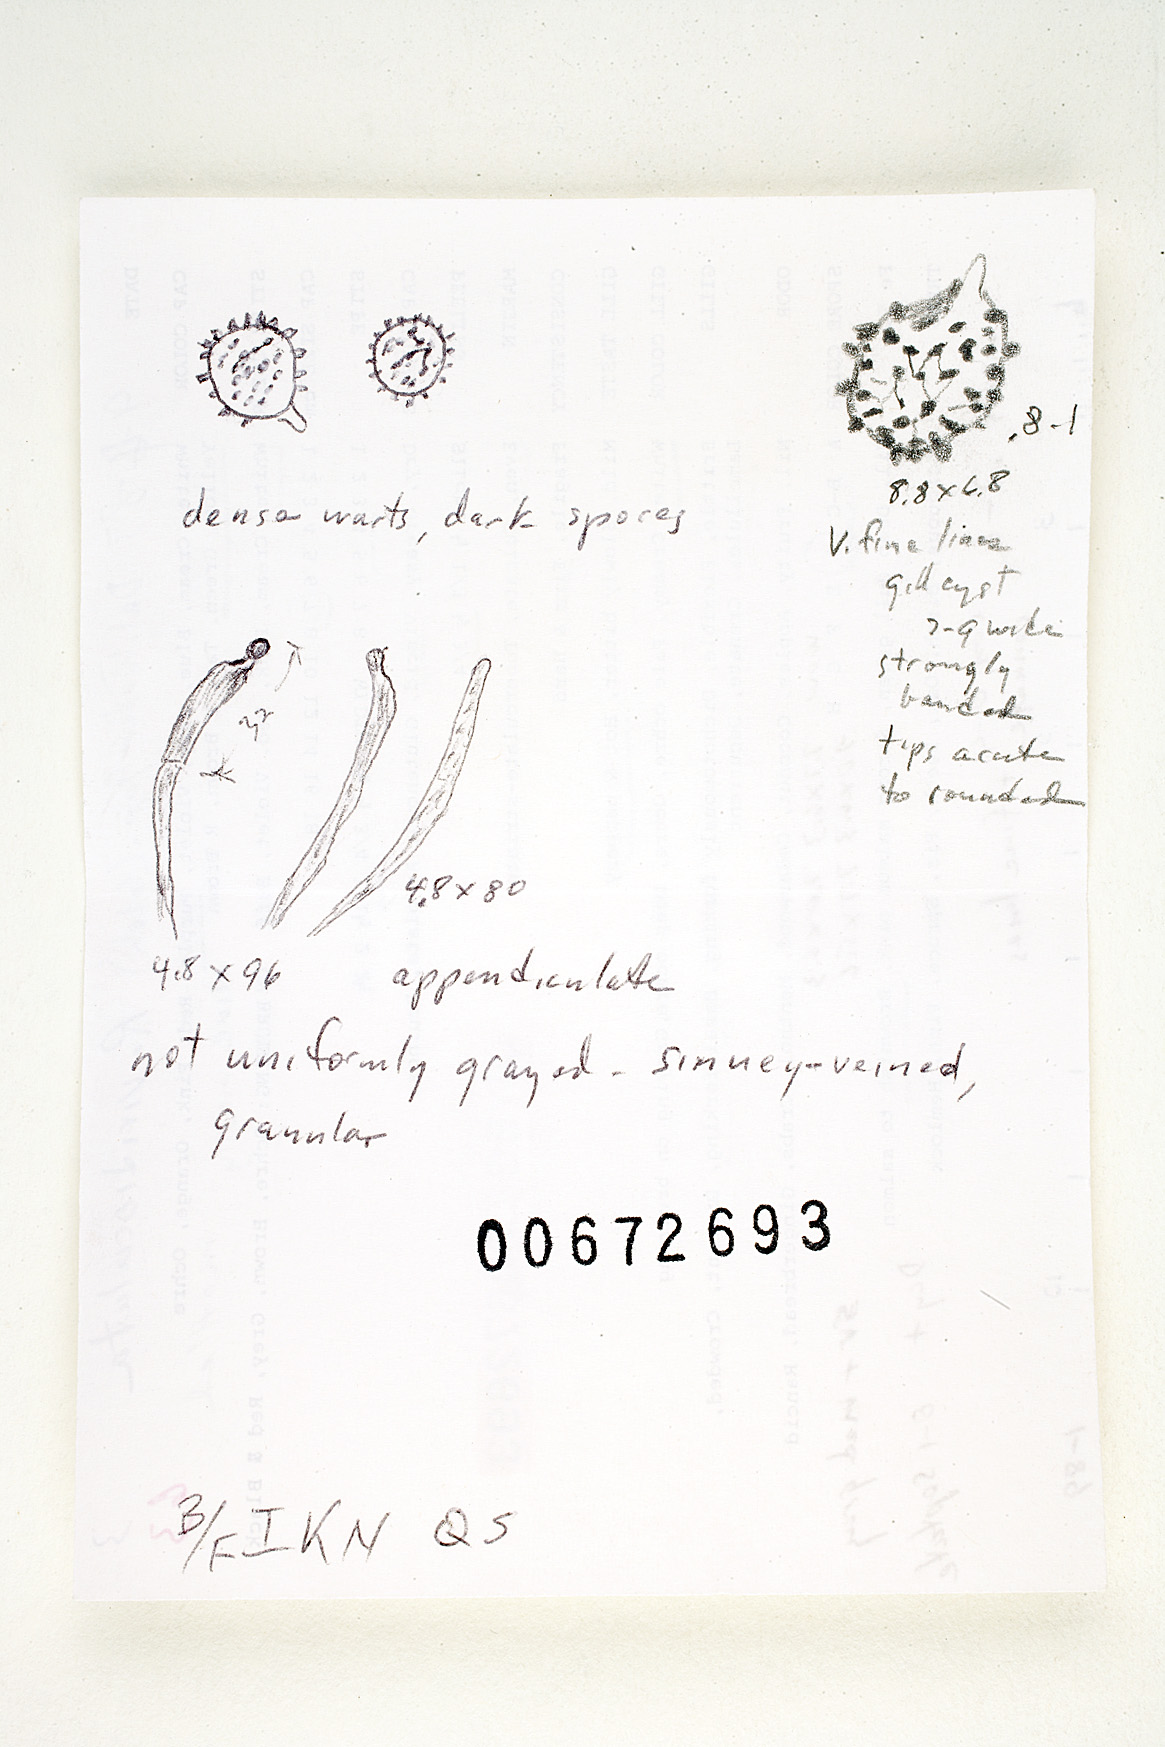 .8-1
8.8 x 6.8
dense warts, dark spores
V. fine lines
gill cyst
7-9 wide
strongly
banded
tips acute
to rounded
32
4.8 x 80
4.8 x 96
appendiculate
not uniformly grayed - sinuey-veined,
granular
00672693
B/F I K N Q S